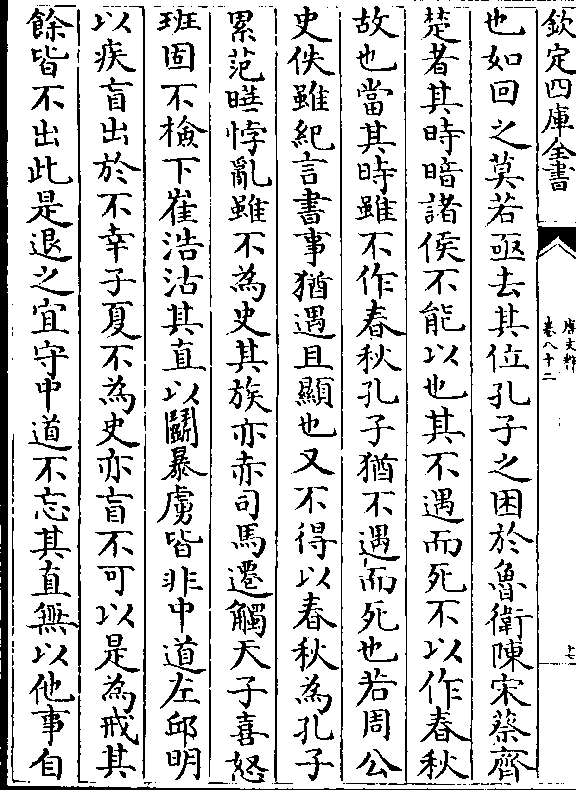 欽定四庫全書
唐文粹
卷八十二
上
也如回之莫若亟去其位孔子之困於魯衛陳宋蔡齊
楚者其時暗諸侯不能以也其不遇而死不以作春秋
故也當其時雖不作春秋孔子猶不遇而死也若周公
史佚雖紀言書事猶遇且顯也又不得以春秋為孔子
累范曄悖亂雖不為史其族亦赤司馬遷觸天子喜怒
班固不檢下崔浩沽其直以鬭暴虜皆非中道左邱明
以疾盲出於不幸子夏不為史亦盲不可以是為戒其
餘皆不出此是退之宜守中道不忘其直無以他事自